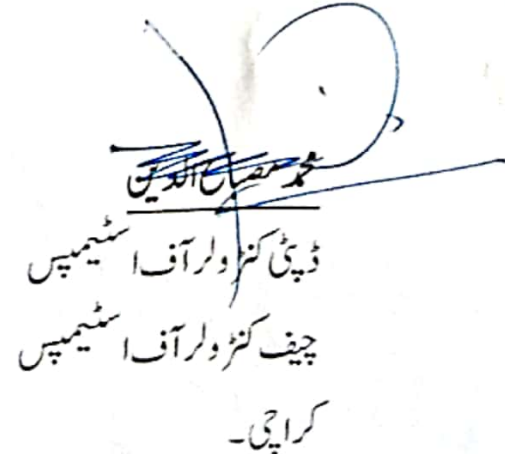 محمد مصباح الدین
ڈپٹی کنٹرولر آف اسٹیمپس
چیف کنٹرولر آف اسٹیمپس
کراچی۔